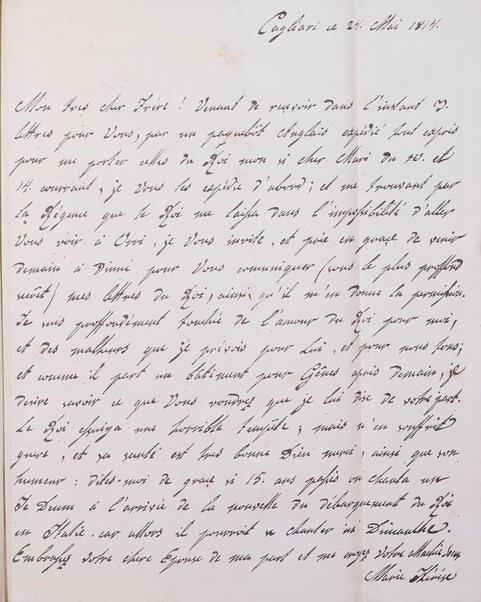 Cagliari ce 24. Mai 1814.
Mon tres cher Frére! Venant de reçevoir dans l'instant 3.
lettres pour Vous, par un paquebôt Anglais expédié tout exprès
pour me porter celles du Roi mon si cher Mari du 10. et
14. courrant, je Vous les expédie d'abord; et me trouvant par
la Régence que le Roi me laissa dans l'impossibilité d'aller
Vous voir à Orri, je Vous invite, et prie en grace de venir
demain à Dinné pour Vous communiquer (sous le plus proffond
secrêt) mes lettres du Roi, ainsi qu'il m'en donne la permission.
Je suis proffondément touchée de l'amour du Roi pour moi,
et des malheurs que je prévois pour Lui, et pour nous tous;
et comme il part un bâtiment pour Gênes après demain, je
desire savoir ce que Vous voudrez que je lui dise de votre part.
Le Roi essuiya une horrible tempête, mais n'en souffrit
guere, et sa santé est tres bonne Dieu merci, ainsi que son
humeur: dites-moi de grace si 15. ans passés on chanta un
Te Deum à l'arrivée de la nouvelle du débarquement du Roi
en Italie. car allors il pourroit se chanter ici Dimanche.
Embrassez votre chere Epouse de ma part et me croyez Votre
Marie Thérèse